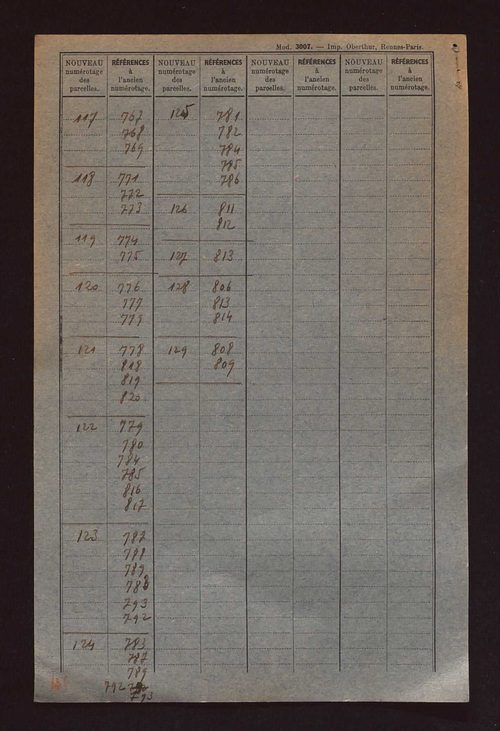 Mod. 3007. — Imp. Oberthur, Rennes-Paris.
NOUVEAU numérotage des parcelles. RÉFÉRENCES à l'ancien numérotage. NOUVEAU numérotage des parcelles. RÉFÉRENCES à l'ancien numérotage. NOUVEAU numérotage des parcelles. RÉFÉRENCES à l'ancien numérotage. NOUVEAU numérotage des parcelles. RÉFÉRENCES à l'ancien numérotage.
117 767
768
769
118 771
772
773
119 774
775
120 776
777
779
121 778
818
819
820
122 779
780
784
785
816
817
123 787
788
789
788
793
792
124 783
787
789
792
793
125 781
782
784
785
786
126 811
812
127 813
128 806
813
814
129 808
809